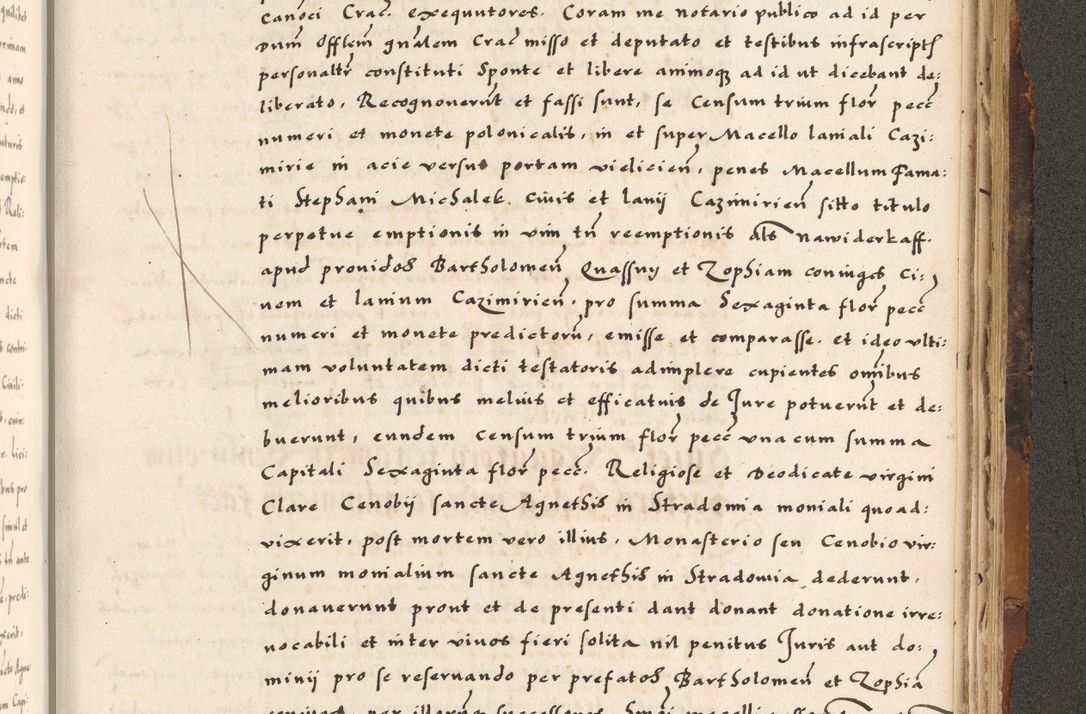 canoci Crac. exequutores. Coram me notario publico ad id per
dum Offlem gnalem Crac misso et deputato et testibus infrascript
personaltr constituti Sponte et libere animoq ad id ut dicebant de:
liberato, Recognoverut et fassi sunt, se Censum trium flor pecc
numeri et monete polonicalis, in et super Macello laniali Cazi:
mirie in acie versus portam vielicien, penes Macellum Fama:
ti Stephani Michalek civis et lanij Cazimirien sitto titulo
perpetue emptionis in vim tn reemptionis als nawiderkaff.
apud providos Bartholomeu Quassny et Zophiam coniuges Ci:
vem et lanium Cazimirien, pro summa Sexaginta flor pecc
numeri et monete predictoru, emisse et comparasse. et ideo ulti:
mam voluntatem dicti testatoris adimplere cupientes omibus
melioribus quibus melius et efficatius de Jure potuerut et de:
buerunt, eundem Censum trium flor pecc una cum summa
Capitali Sexaginta flor pecc. Religiose et Deodicate virgini
Clare Cenobij sancte Agnethis in Stradomia moniali quoad:
vixerit, post mortem vero illius, Monasterio seu Cenobio vir:
ginum monialium sancte Agnethis in Stradomia dederunt,
donaverunt prout et de presenti dant donant donatione irre:
vocabili et inter vivos fieri solita nil penitus Juris aut do:
minij pro se reservando per prefatos Bartholomeu et Zophia